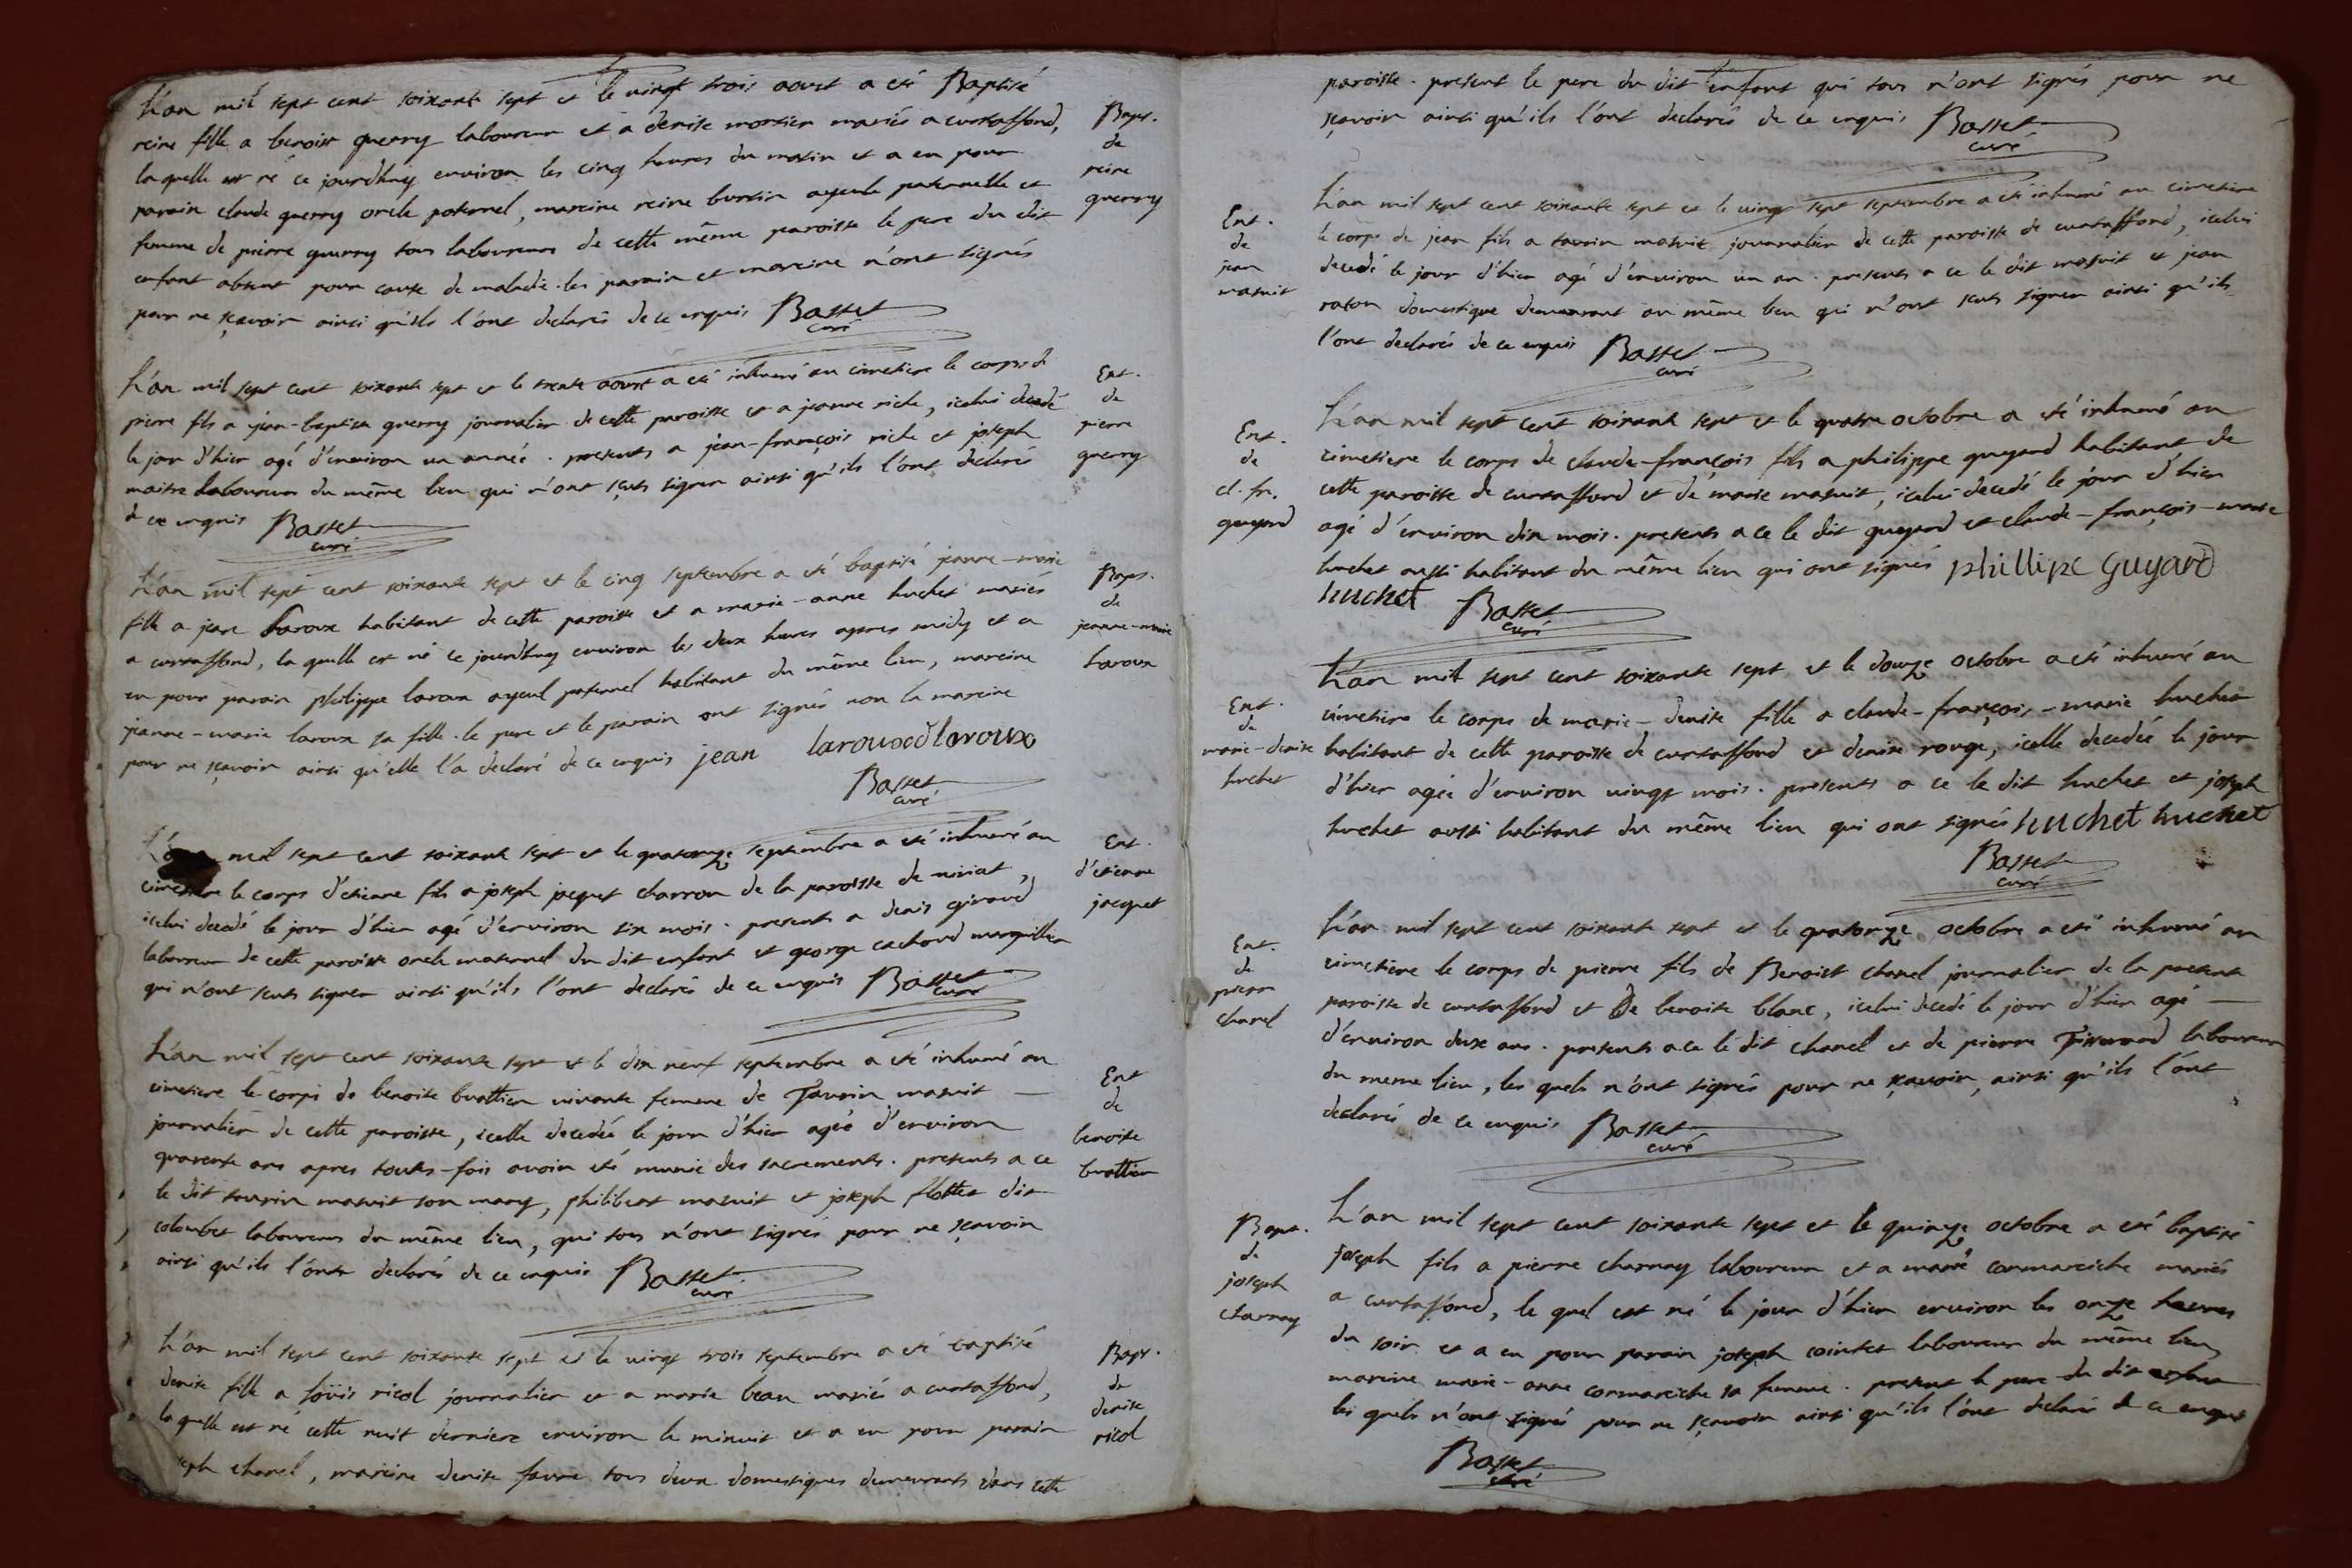 L'an mil sept cent soixante sept et le vingt trois aoust a eté Baptisé
reine fille a benoist guerry laboureur et a denise mortier mariés a curtaffond,
la quelle est né ce jourdhuy environ les cinq heures du matin et a eu pour
parain claude guerry oncle paternel, mareine reine burtin ayeule paternelle et
femme de pierre guerry tous laboureurs de cette même paroisse le pere du dit
enfant absent pour cause de maladie. les parain et mareine n'ont signés
pour ne sçavoir ainsi qu'ils l'ont declarés de ce enquis Basset
curé
Bapt.
de
reine
guerry
L'an mil sept cent soixante sept et le trente aoust a eté inhumé au cimetiere le corps de
pierre fils a jean-baptiste guerry journalier de cette paroisse et a jeanne riche, icelui decedé
le jour d'hier agé d'environ un année. presents a jean-françois riche et joseph
maitre laboureurs du même lieu qui n'ont sçuts signer ainsi qu'ils l'ont declarés
de ce enquis Basset
curé
Ent.
de
pierre
guerry
L'an mil sept cent soixante sept et le cinq septembre a eté baptisé jeanne-marie
fille a jean Laroux habitant de cette paroisse et a marie-anne huchet mariés
a curtaffond, la quelle est né ce jourdhuy environ les deux heures apres midy et a
eu pour parain philippe laroux ayeul paternel habitant du même lieu, mareine
jeanne-marie laroux sa fille. le pere et le parain ont signés non la mareine
pour ne sçavoir ainsi qu'elle l'a declaré de ce enquis jean laroux laroux
Basset
curé
Bapt.
de
jeanne-marie
Laroux
L'an mil sept cent soixante sept et le quatorze septembre a eté inhumé au
cimetiere le corps d'etienne fils a joseph jacquet charron de la paroisse de viriat,
icelui decedé le jour d'hier agé d'environ six mois. presents a denis giraud
laboureur de cette paroisse oncle maternel du dit enfant et george cachard marguillier
qui n'ont sçuts signer ainsi qu'ils l'ont declarés de ce enquis Basset
curé
Ent.
d'etienne
jacquet
L'an mil sept cent soixante sept et le dix neuf septembre a eté inhumé au
cimetiere le corps de benoite buattier vivante femme de Taurin masuit
journalier de cette paroisse, icelle decedée le jour d'hier agée d'environ
quarente ans apres toutes-fois avoir eté munie des sacrements. presents a ce
le dit taurin masuit son mary, philibert masuit et joseph flottet dit
colombet laboureurs du même lieu, qui tous n'ont signés pour ne sçavoir
ainsi qu'ils l'ont declarés de ce enquis Basset
curé
Ent
de
benoite
buattier
L'an mil sept cent soixante sept et le vingt trois septembre a eté baptisé
denise fille a Loüis ricol journalier et a marie beau mariés a curtaffond,
la quelle est né cette nuit derniere environ le minuit et a eu pour parain
seph chanel, mareine denise favre tous deux domestiques demeurants dans cette
Bapt.
de
denise
ricol
paroisse. present le pere du dit enfant qui tous n'ont signés pour ne
sçavoir ainsi qu'ils l'ont declarés de ce enquis Basset
curé
Ent.
de
jean
masuit
L'an mil sept cent soixante sept et le vingt sept septembre a eté inhumé au cimetiere
le corps de jean fils a taurin masuit journalier de cette paroisse de curtaffond, icelui
decedé le jour d'hier agé d'environ un an. presents a ce le dit masuit et jean
raton domestique demeurant au même lieu qui n'ont sçuts signer ainsi qu'ils
l'ont declarés de ce enquis Basset
curé
Ent.
de
cl. fr.
guyard
L'an mil sept cent soixante sept et le quatre octobre a eté inhumé au
cimetiere le corps de claude-françois fils a philippe guyard habitant de
cette paroisse de curtaffond et de marie masuit, icelui decedé le jour d'hier
agé d'environ dix mois. presents a ce le dit guyard et claude-françois-marie
huchet aussi habitant du même lieu qui ont signés phillipe Guyard
huchet Basset
curé
Ent.
de
marie-denise
huchet
L'an mil sept cent soixante sept et le douze octobre a eté inhumé au
cimetiere le corps de marie-denise fille a claude-françois-marie huchet
habitant de cette paroisse de curtaffond et denise rouge, icelle decedée le jour
d'hier agée d'environ vingt mois. presents a ce le dit huchet et joseph
huchet aussi habitant du même lieu qui ont signés huchet huchet
Basset
curé
Ent.
de
pierre
chanel
L'an mil sept cent soixante sept et le quatorze octobre a eté inhumé au
cimetiere le corps de pierre fils de Benoist chanel journalier de la presente
paroisse de curtaffond et De benoite blanc, icelui decedé le jour d'hier agé
d'environ deux ans. presents a ce le dit chanel et de pierre Tisserand laboureur
du meme lieu, les quels n'ont signés pour ne sçavoir, ainsi qu'ils l'ont
declarés de ce enquis Basset
curé
Bapt.
de
joseph
charnay
L'an mil sept cent soixante sept et le quinze octobre a eté baptisé
joseph fils a pierre charnay laboureur et a marie cormareiche mariés
a curtaffond, le quel est né le jour d'hier environ les onze heures
du soir et a eu pour parain joseph cointet laboureur du même lieu
mareine marie-anne cormareiche sa femme. present le pere du dit enfant
les quels n'ont signés pour ne sçavoir ainsi qu'ils l'ont declarés de ce enquis
Basset
curé